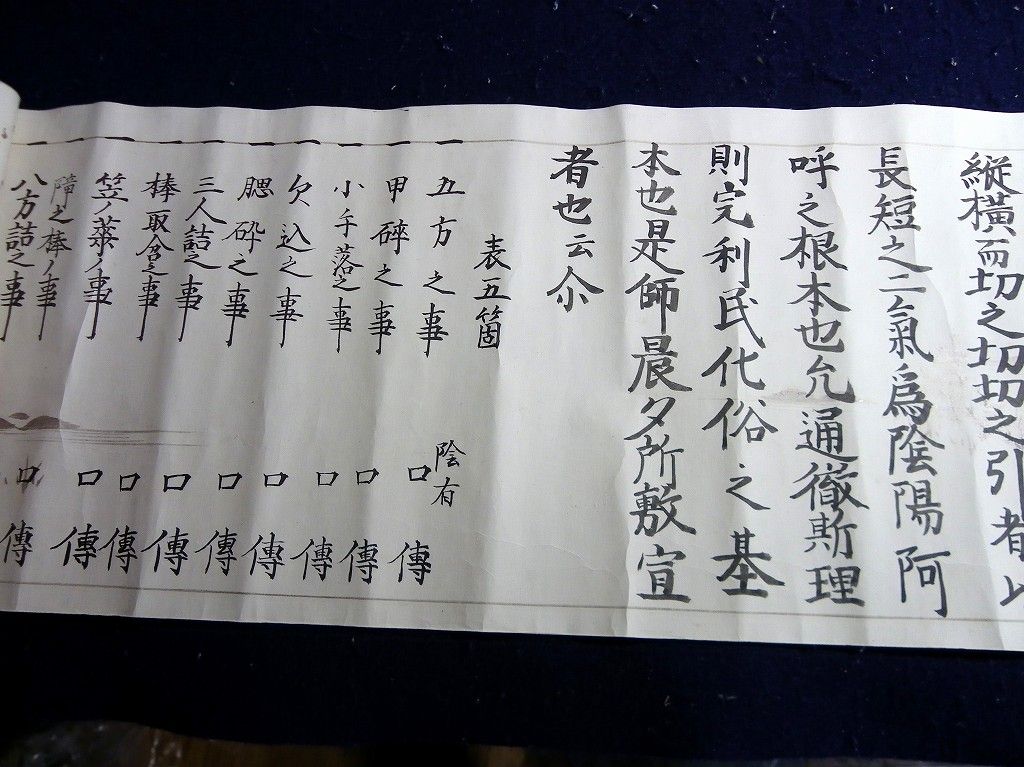 縦横而切之切切之引者比
長短之二氣為陰陽阿
呼之根本也允通徹斯理
則完利民化俗之基
本也是師晨夕所敷宣
者也云尒
表五箇
一五方之事 陰有 口傳
一甲碎之事 口傳
一小手落之事 口傳
一欠込之事 口傳
一腮砕之事 口傳
一三人詰之事 口傳
一棒取合之事 口傳
一笠ノ事 口傳
障之棒ノ事
一八方詰之事 口傳